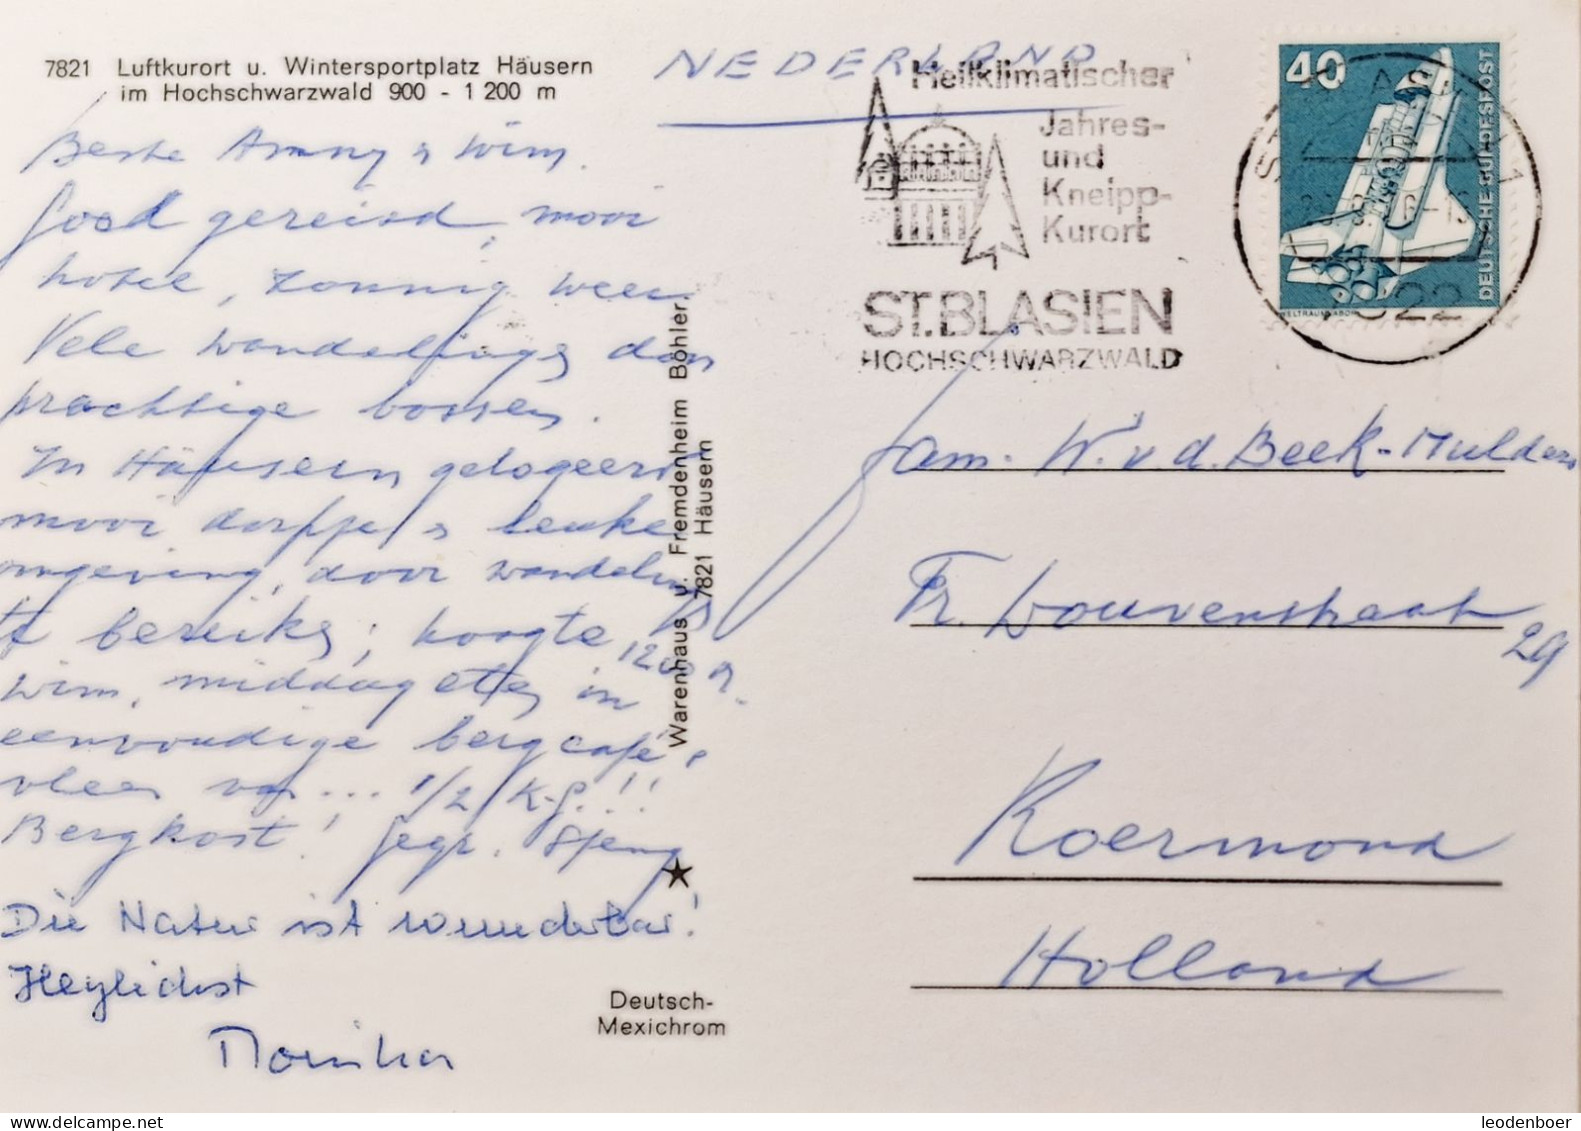 7821 Luftkurort u. Wintersportplatz Häusern
im Hochschwarzwald 900 - 1 200 m
Beste Annny & Wim.
Goed gereisd, mooi
hotel, zonnig weer
Vele wandelings door
prachtige bossen.
In Häusern gelogeerd
mooi dorpje & leuke
omgeving, door wandeling
te bereiks; hoogte 1200 m.
Wim, middag ets in
eenvoudige berg café,
vlees van ... 1/2 K.g.!!
Bergkost!
Die Natur ist wunderbar!
Herzlichst
Monika
Warenhaus u. Fremdenheim Böhler.
7821 Häusern
Deutsch-
Mexichrom
NEDERLAND
Heilklimatischer
Jahres-
und
Kneipp-
Kurort
ST.BLASIEN
HOCHSCHWARZWALD
40
DEUTSCHE BUNDESPOST
WELTRAUMLABOR
7822
fam. W. v. d. Beek-Mulders
Fr. Douvenstraat
29
Roermond
Holland
leodenboer